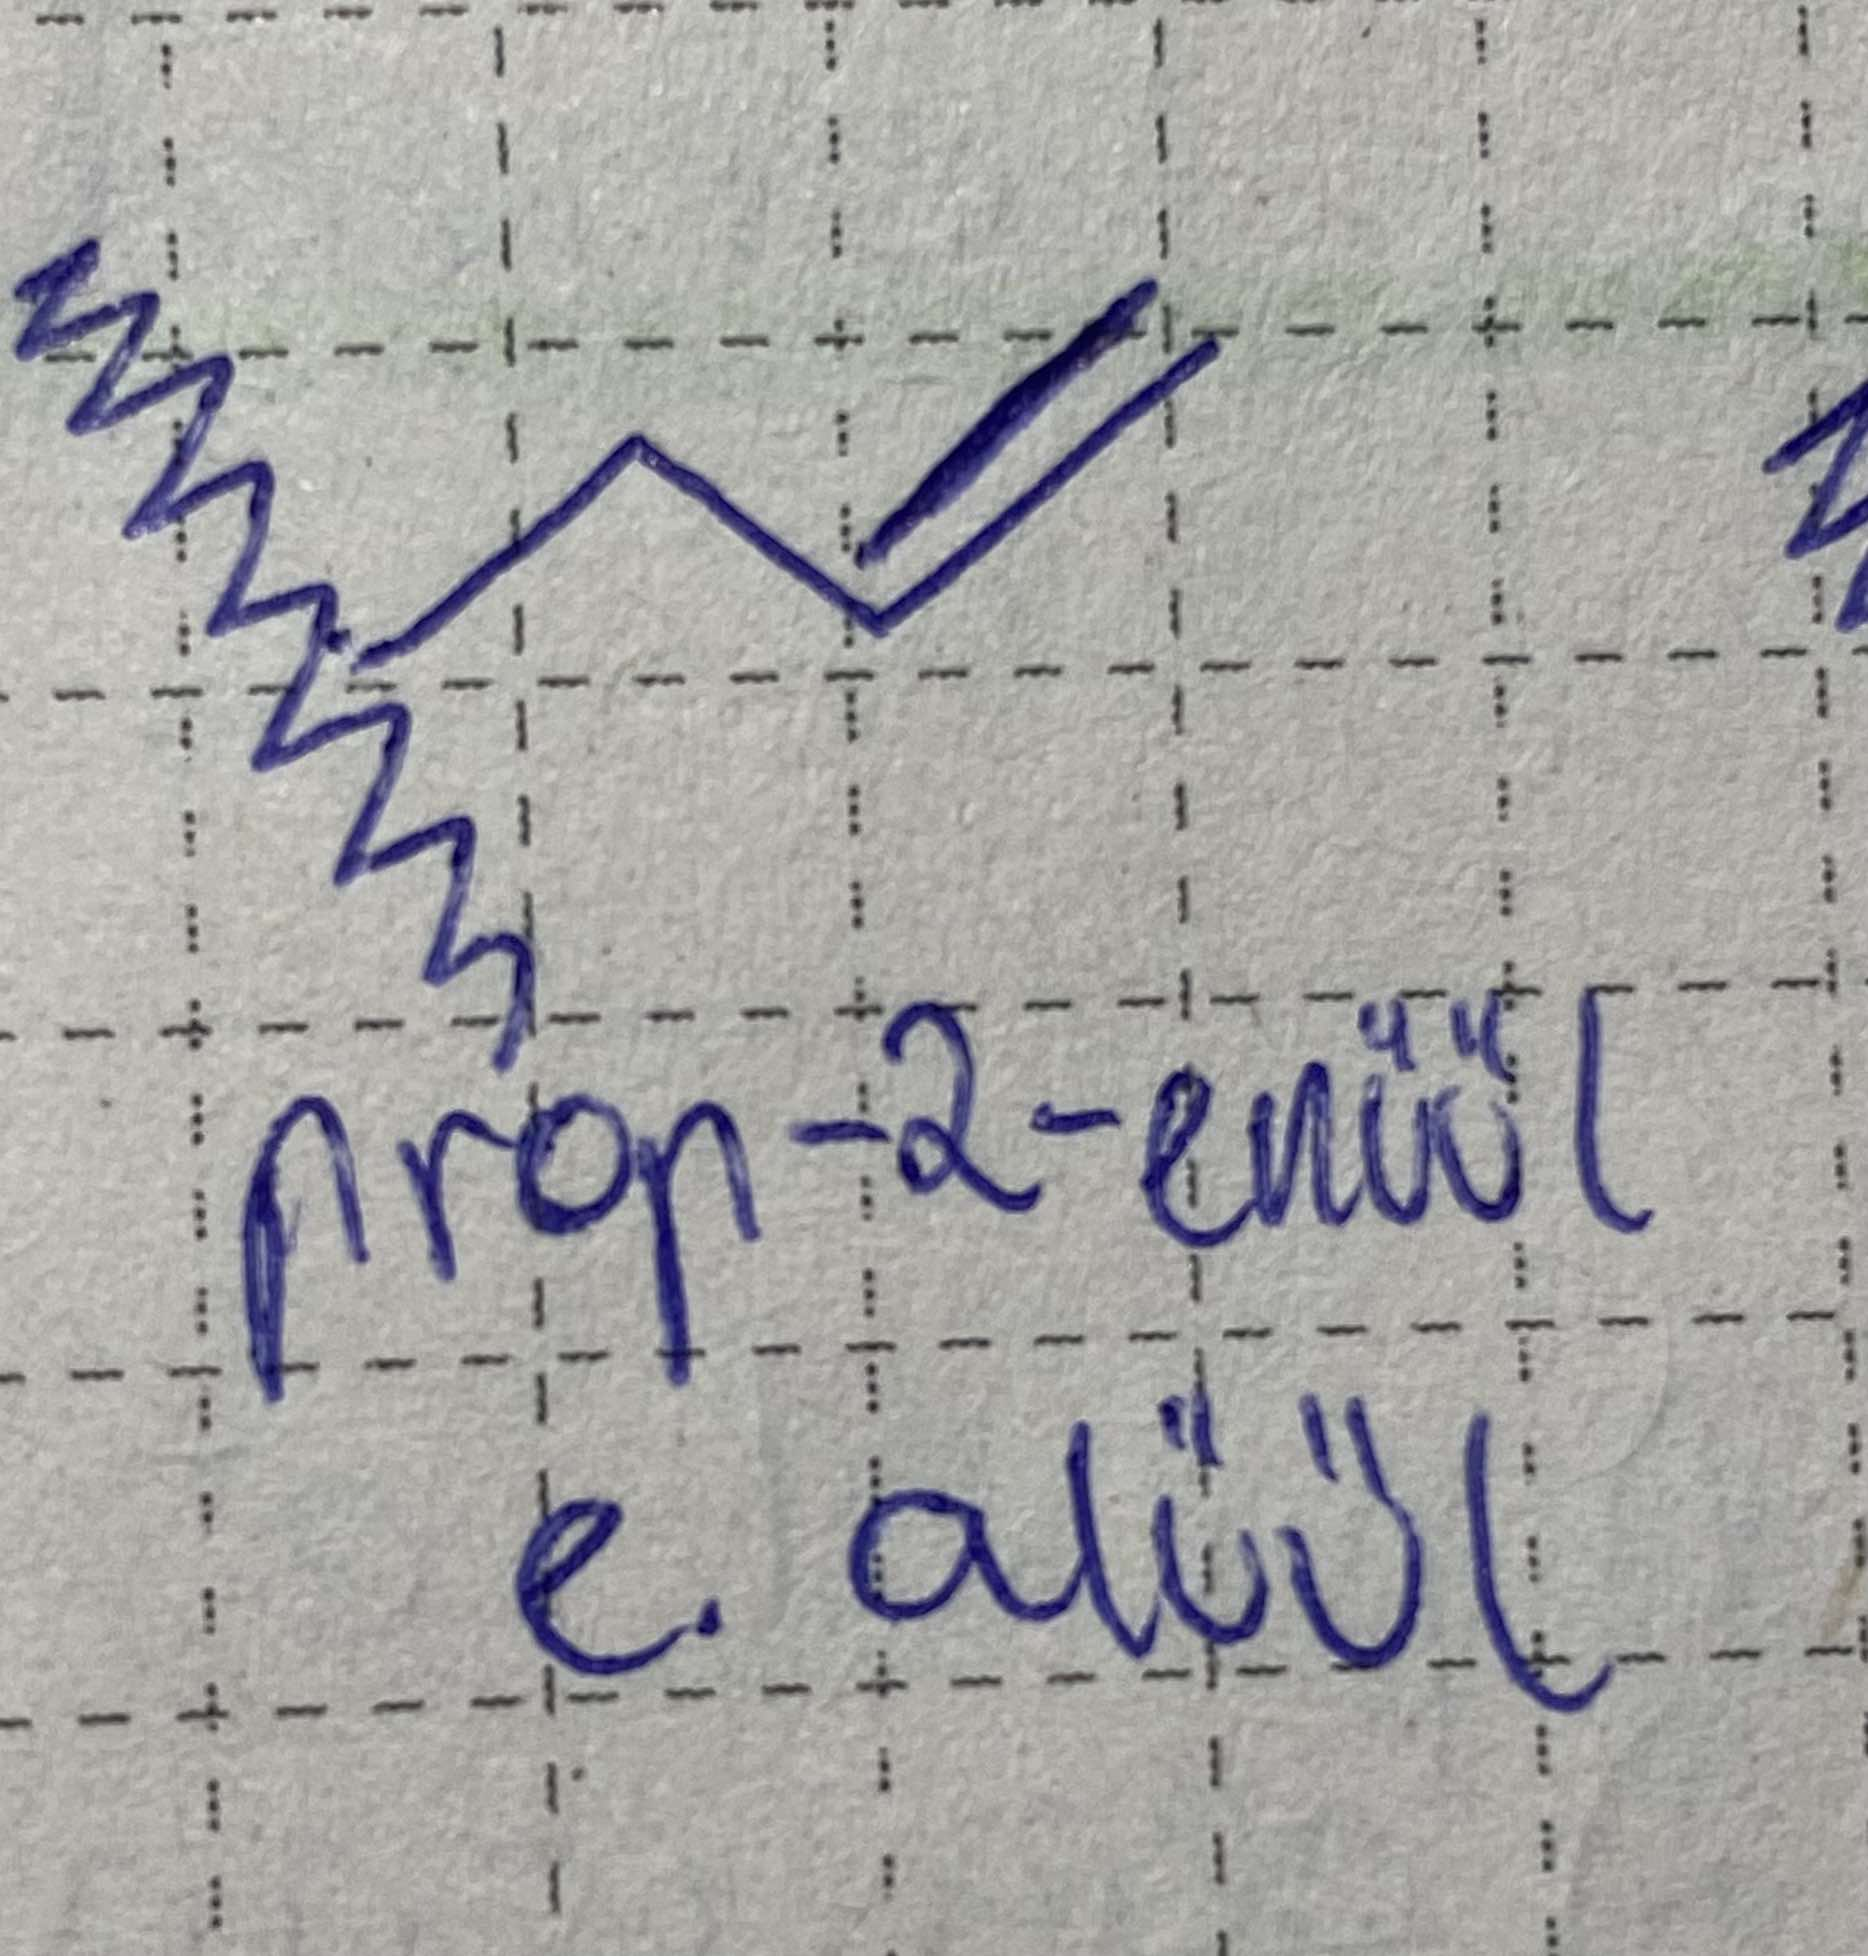 prop-2-enüül
e. alüül